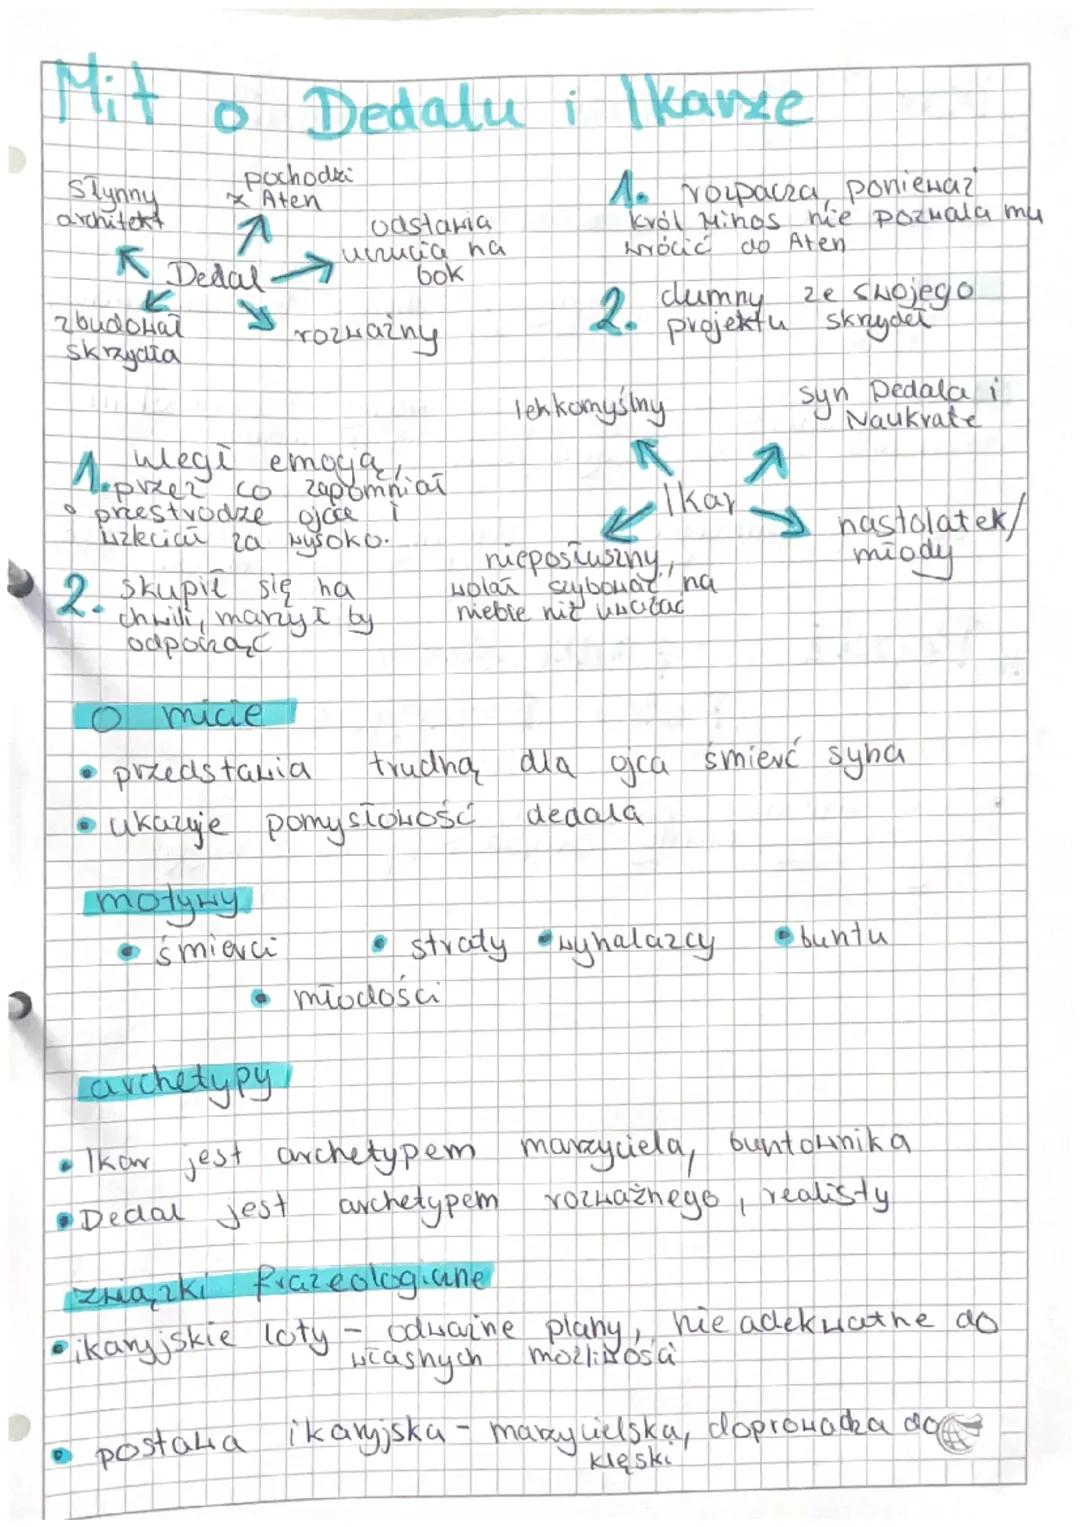 Mit o Dedalu i Ikarze
słynny
architekt
pochodzi
z Aten
odstawia
uczucia na
bok
Dedal
zbudował
skrzydła
rozważny
1. rozpacza, ponieważ
król Minos nie pozwala mu
wrócić do Aten
2. dumny ze swojego
projektu skrzydeł
lekkomyślny
syn Dedala i
Naukrate
Ikar
nastolatek/
młody
nieposłuszny,
wolał szybować na
niebie niż uważać
1. uległ emocją,
przez co zapomniał
o przestrodze ojca i
wzleciał za wysoko.
2. skupił się na
chwili, marzył by
odpocząć
O micie
• przedstawia trudną dla ojca śmierć syna
• ukazuje pomysłowość dedala
motywy
• śmierci • straty • wynalazcy • buntu
• młodości
archetypy
• Ikar jest archetypem marzyciela, buntownika
• Dedal jest archetypem rozważnego, realisty
związki frazeologiczne
• ikaryjskie loty - odważne plany, nie adekwatne do
własnych możliwości
• postawa ikaryjska - marzycielska, doprowadza do
klęski